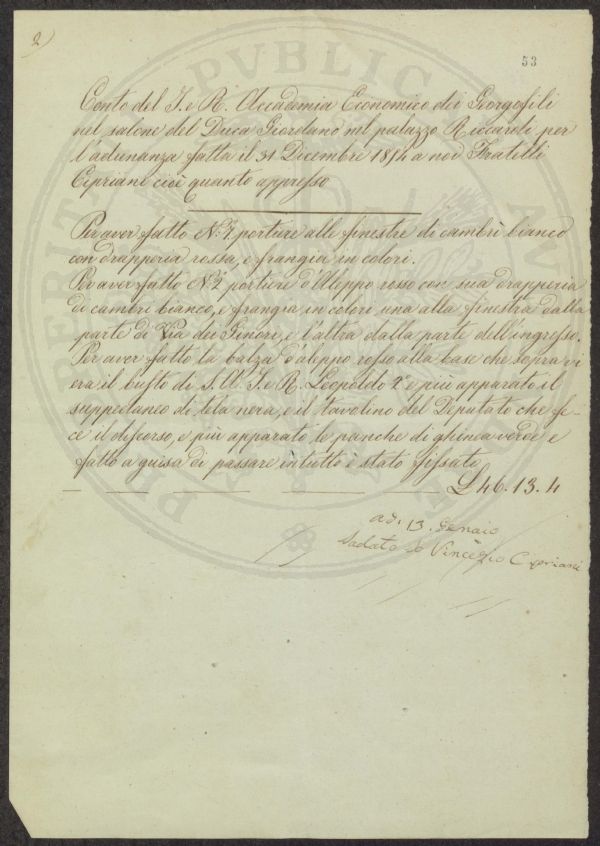 2)
53
Conto del I. e R. Accademia Economico dei Georgofili
nel salone del Duca Giordano nel palazzo Riccardi per
l'adunanza fatta il 31 Dicembre a noi Fratelli
Cipriani cioè quanto appresso
Per aver fatto N.° portiere alle finestre di cambrì bianco
con drapperia rossa, e frangia in colori.
Per aver fatto N.° 2 portiere d'Aleppo rosso con sua drapperia
di cambrì bianco, e frangia in colori una alla finestra dalla
parte di Via dei Ginori, e l'altra dalla parte dell'ingresso.
Per aver fatto la balza d'aleppo rosso alla base che sopra vi
era il busto di S. A. I. e R. Leopoldo 2° e più apparato il
suppedaneo di tela nera, e il tavolino del Deputato che fe-
ce il discorso, e più apparato le panche di ghinea verde e
fatto a guisa di passare in tutto è stato fissato
£ 46. 13. 4
adì 13. Genaio
Saldato Io Vincenzio Cipriani
PVBLICA